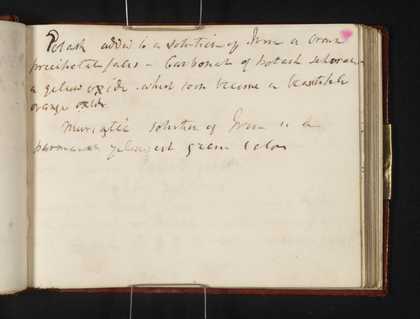 Potash added to a solution of Iron a brown
precipitate falls – Carbonate of Potash
a yellow oxide which soon become a beautiful
orange oxide.
Muriatic solution of Iron is a
permanent yellowish green Color